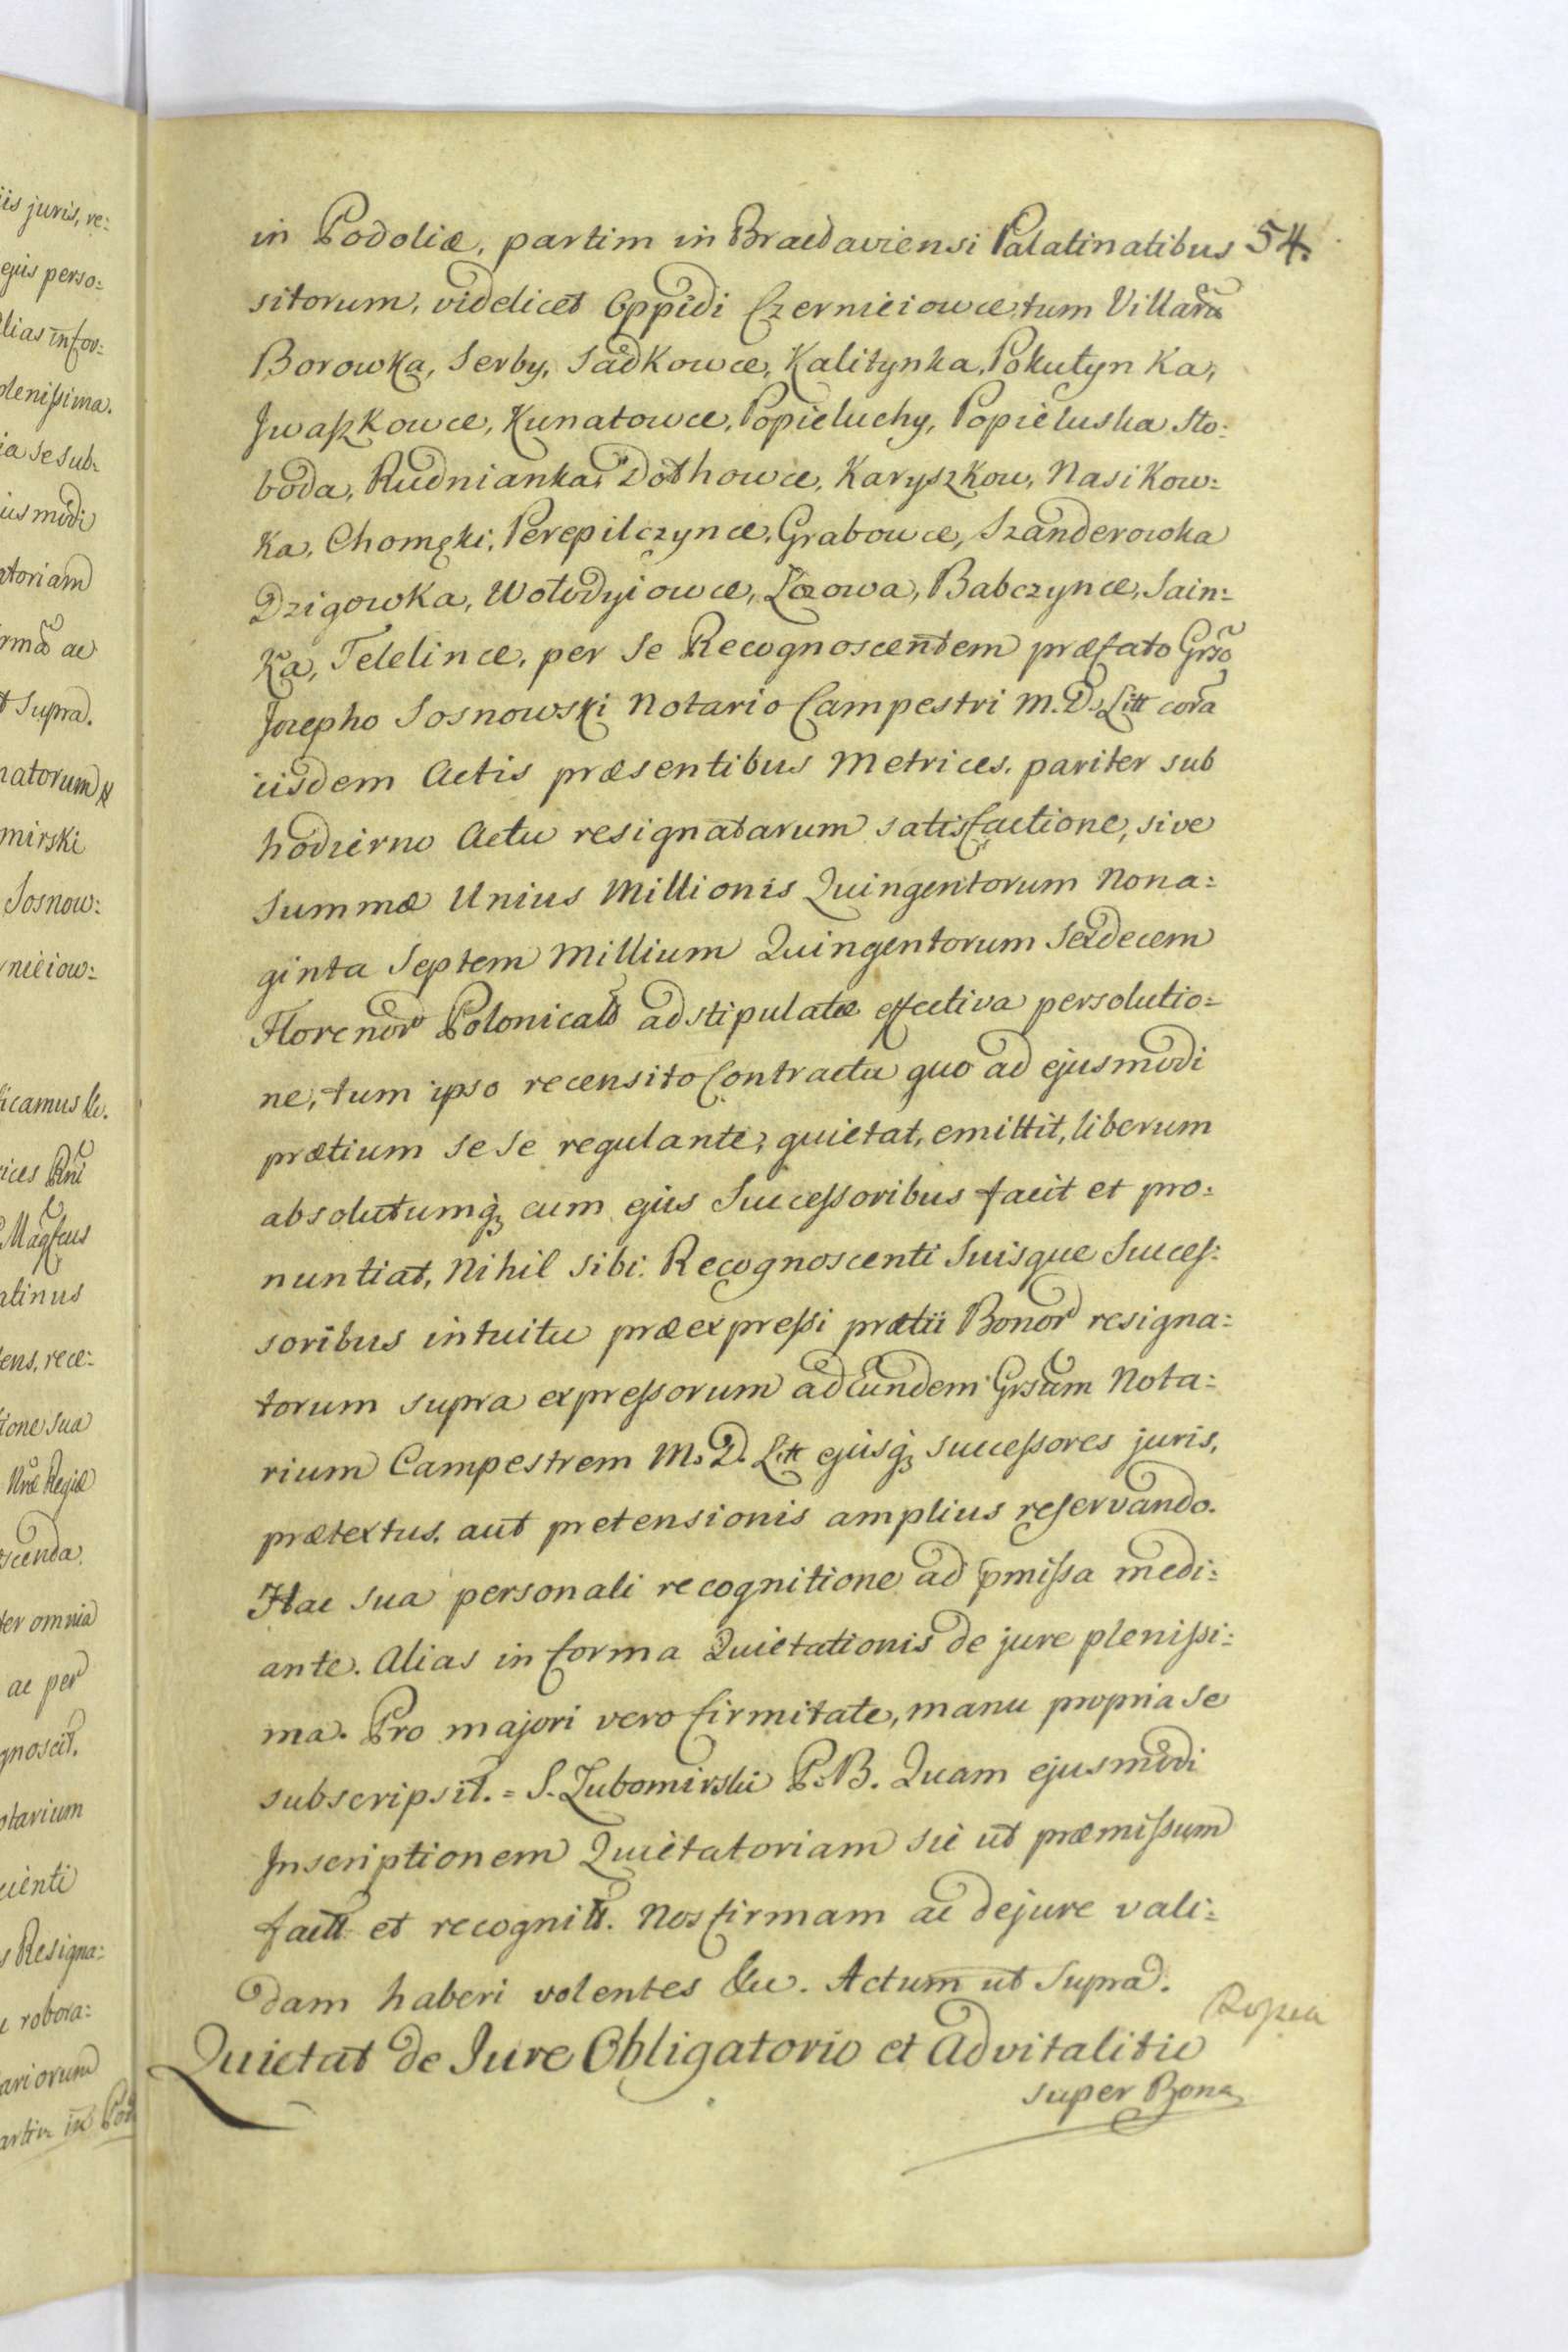 54.
in Podoliæ, partim in Bracdaviensi Palatinatibus
sitorum, videlicet Oppidi Czernieiowce, tum Villarũ
Borowka, Serby, Sadkowce, Kalitynka, Pokutynka,
Jwaszkowce, Kunatowce, Popieluchy, Popieluska Sło:
boda, Rudnianka, Dołhowce, Karyszkow, Nasikow:
ka, Chomęki, Perepilczynce, Grabowce, Szanderowka
Dzigowka, Wołodyiowce, Łozowa, Babczynce, Sain:
ka, Telelince, per Se Recognoscentem præfato Grso
Jozepho Sosnowski Notario Campestri M. D. Litt corã
iisdem Actis præsentibus Metrices, pariter sub
hodierno Actu resignatarum satisfactione, sive
Summæ Unius Millionis Quingentorum Nona:
ginta Septem Millium Quingentorum Sexdecem
Florenor Polonical adstipulatæ effectiva persolutio=
ne, tum ipso recensito Contractu quo ad ejusmodi
prætium Se Se regulante, quietat, emittit, liberum
absolutumq; eum ejus Successoribus facit et pro:
nuntiat, Nihil Sibi Recognoscenti Suisque Succes:
soribus intuitu præexpressi prætii Bonor resigna:
torum supra expressorum ad Eundem Grsum Nota:
rium Campestrem M. D. Litt ejusq; successores juris,
prætextus, aut pretensionis amplius reservando.
Hac Sua personali recognitione ad pmissa medi:
ante. Alias in forma Quietationis de jure plenissi:
ma. Pro majori vero firmitate, manu propria Se
subscripsit. = S. Lubomirski P. B. Quam ejusmodi
Inscriptionem Quietatoriam Sic ut præmissum
factt et recognitt. Nos firmam ac de jure vali:
dam haberi volentes &c. Actum ut Supra.
Quietat de Jure Obligatorio et Advitalitio
super Bona